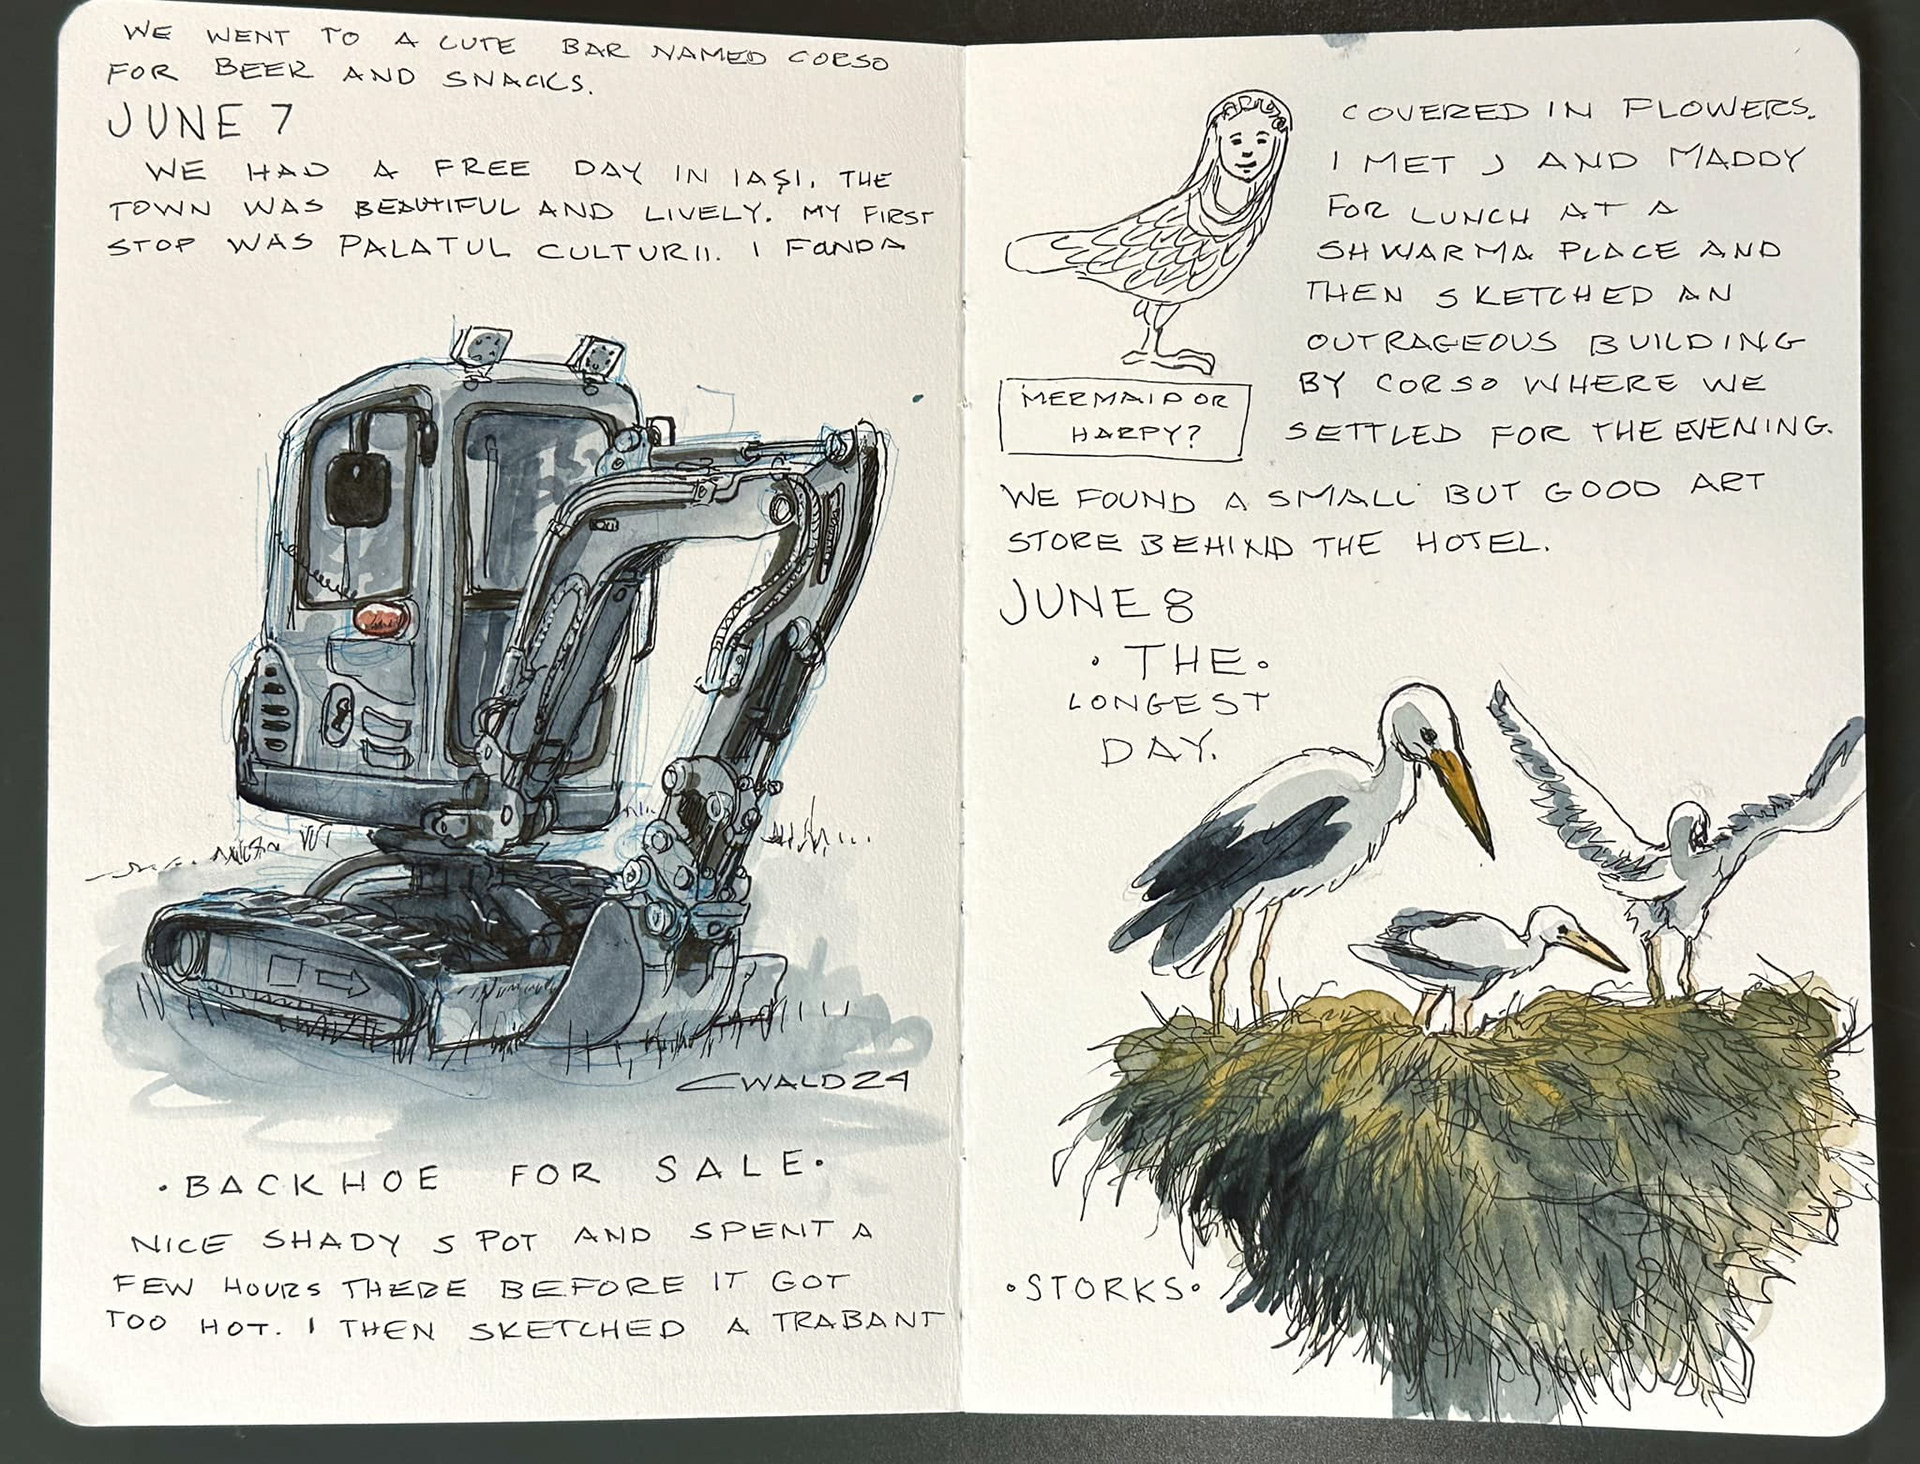 WE WENT TO A CUTE BAR NAMED CORSO
FOR BEER AND SNACKS.
JUNE 7
WE HAD A FREE DAY IN IAȘI. THE
TOWN WAS BEAUTIFUL AND LIVELY. MY FIRST
STOP WAS PALATUL CULTURII. I FOUND A
CWALD24
•BACKHOE FOR SALE•
NICE SHADY SPOT AND SPENT A
FEW HOURS THERE BEFORE IT GOT
TOO HOT. I THEN SKETCHED A TRABANT
COVERED IN FLOWERS.
I MET J AND MADDY
FOR LUNCH AT A
SHWARMA PLACE AND
THEN SKETCHED AN
OUTRAGEOUS BUILDING
BY CORSO WHERE WE
SETTLED FOR THE EVENING.
MERMAID OR
HARPY?
WE FOUND A SMALL BUT GOOD ART
STORE BEHIND THE HOTEL.
JUNE 8
•THE•
LONGEST
DAY.
•STORKS•